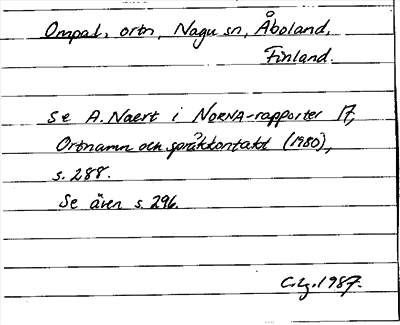 Ompal, ortn, Nagu sn, Åboland,
Finland.
Se A. Naert i NORNA-rapporter 17,
Ortnamn och språkkontakt (1980),
s. 288.
Se även s. 296.
C.Lg. 1987.